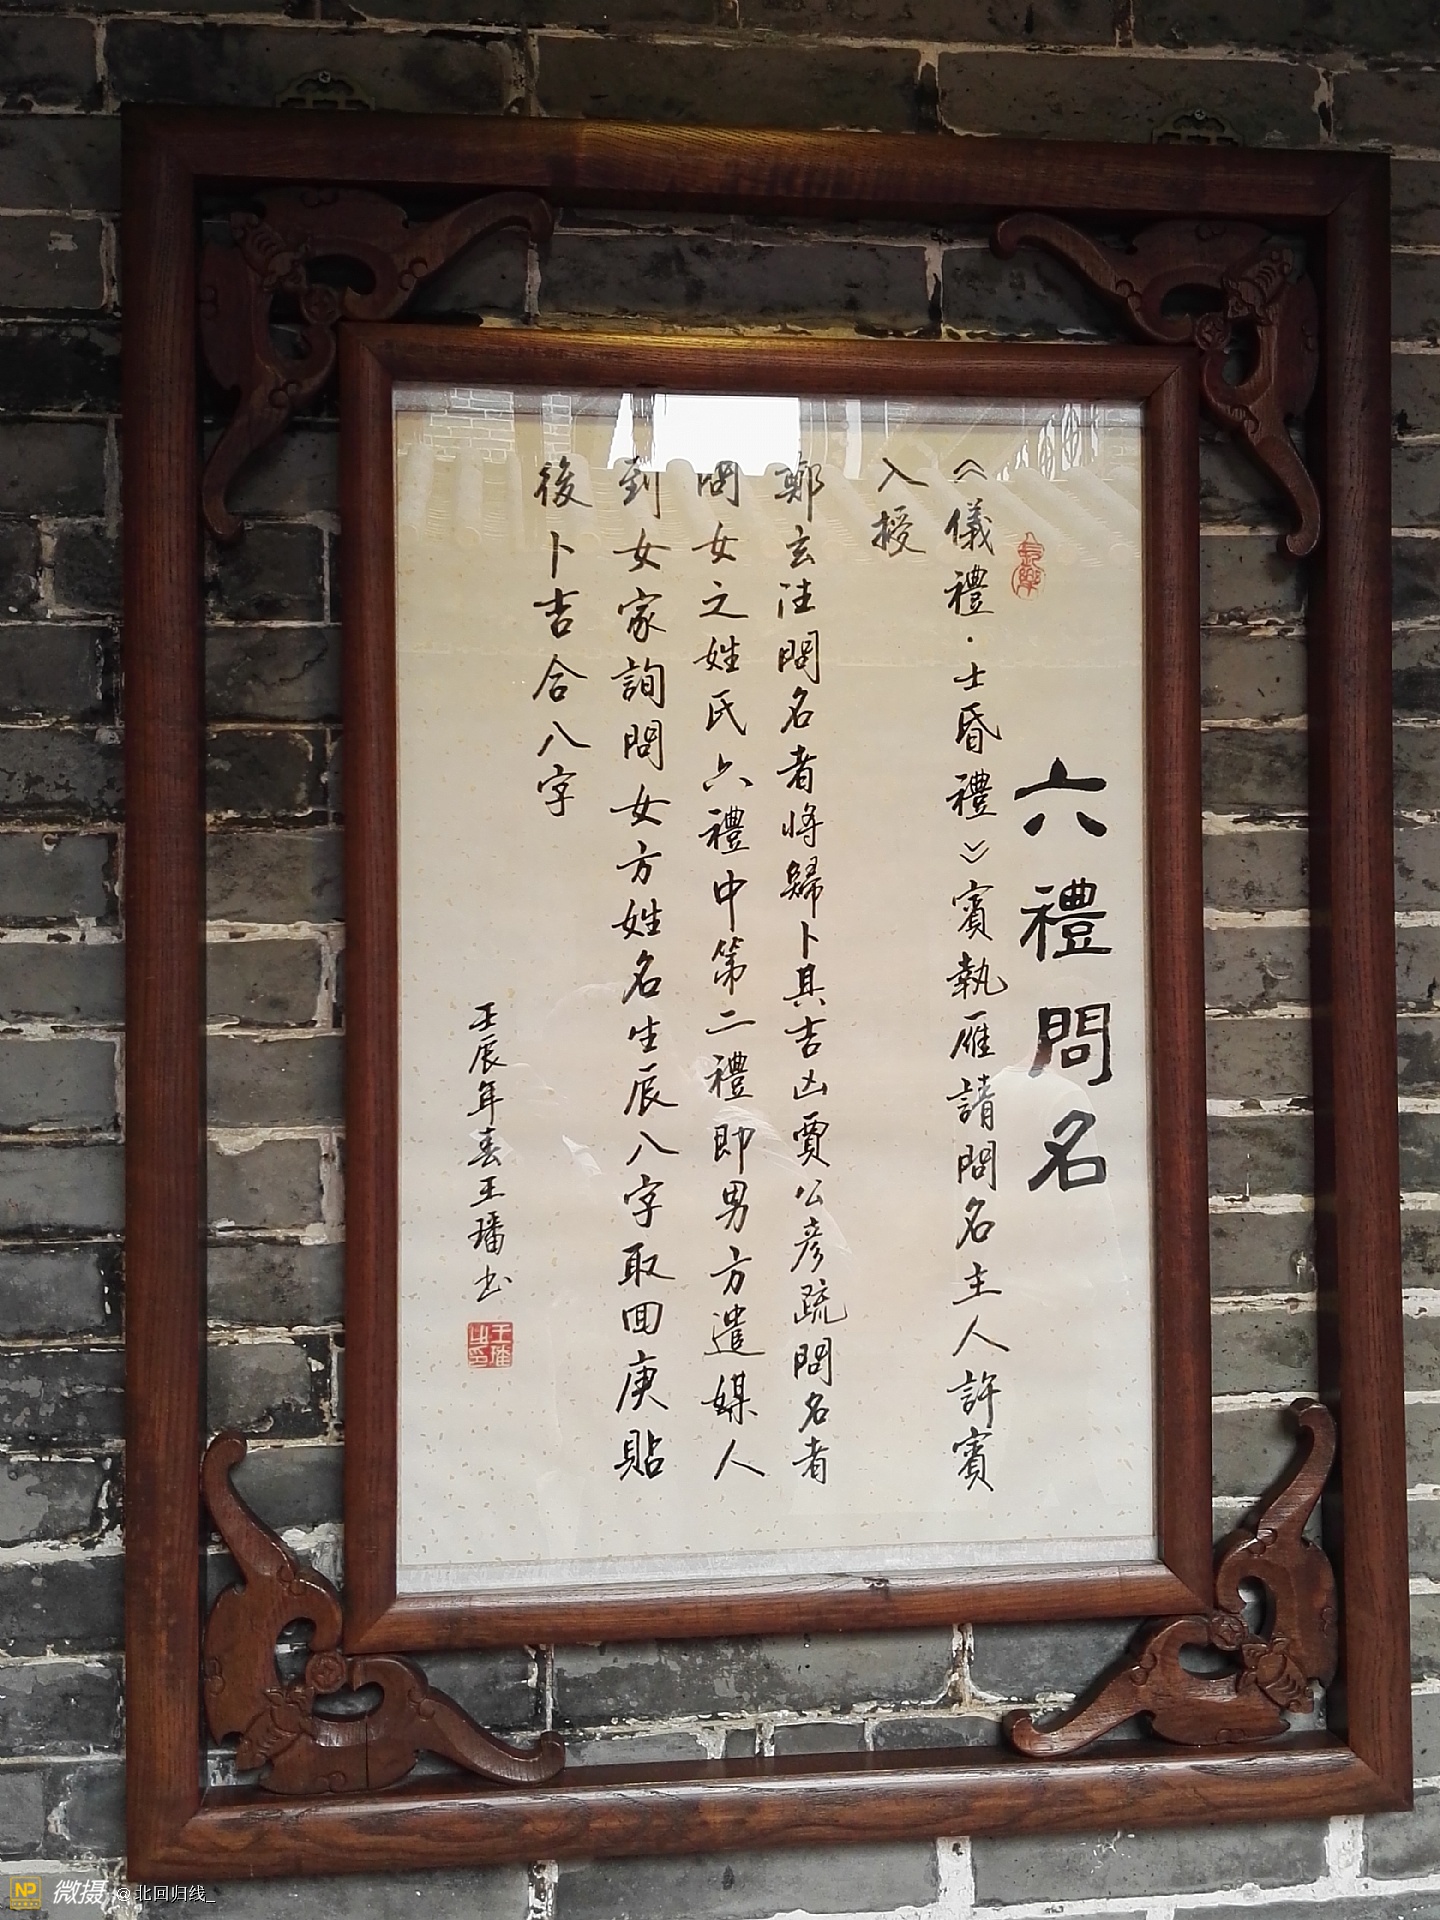 六禮問名
《儀禮·士昏禮》賓執雁請問名主人許賓
入授
鄭玄注問名者將歸卜其吉凶賈公彥疏問名者
問女之姓氏六禮中第二禮即男方遣媒人
到女家詢問女方姓名生辰八字取回庚貼
後卜吉合八字
壬辰年春王璠书
微摄 @北回归线_
NP